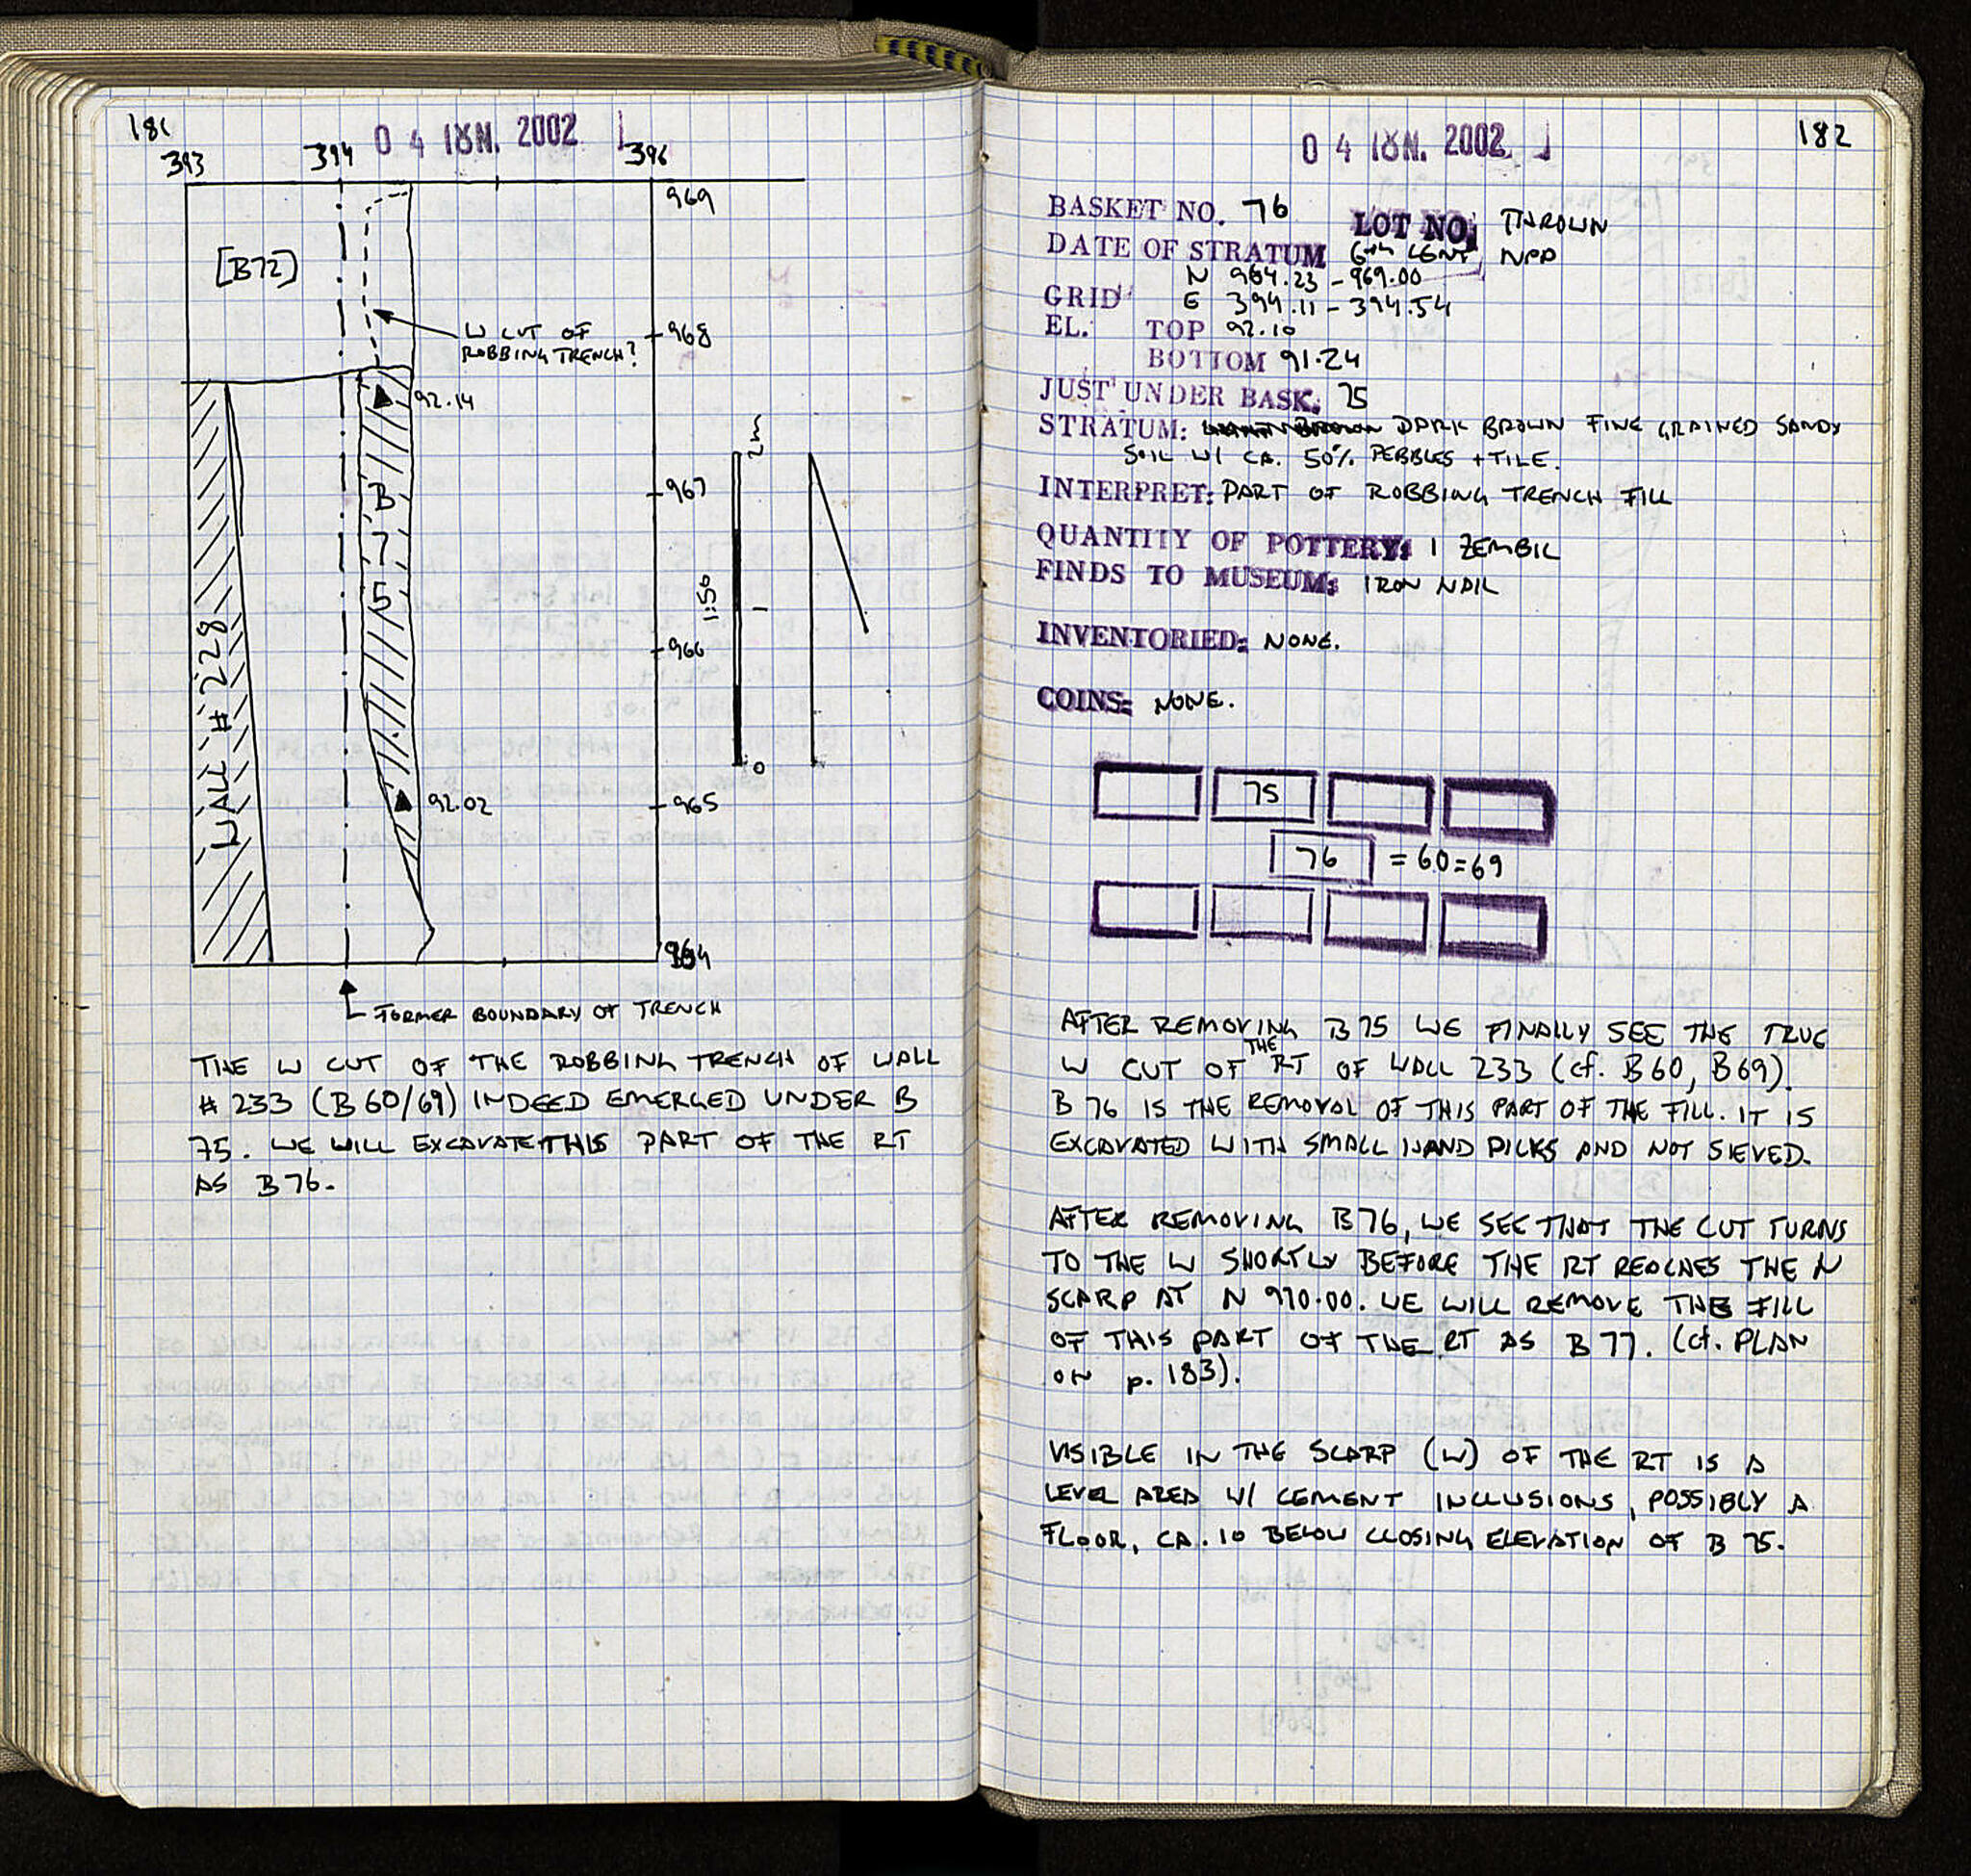 181
04 ΙΟΥΝ. 2002
393
394
396
969
[B72]
W CUT OF
ROBBING TRENCH?
968
92.14
2m
967
B
7
5
1:50
1
966
WALL # 228
0
92.02
965
964
FORMER BOUNDARY OF TRENCH
THE W CUT OF THE ROBBING TRENCH OF WALL
# 233 (B 60/69) INDEED EMERGED UNDER B
75. WE WILL EXCAVATE THIS PART OF THE RT
AS B 76.
04 ΙΟΥΝ. 2002
182
BASKET NO. 76 LOT NO. THROWN
DATE OF STRATUM 6TH CENT, NPD
N 964.23 - 969.00
GRID E 394.11 - 394.54
EL. TOP 92.10
BOTTOM 91.24
JUST UNDER BASK. 75
STRATUM: DARK BROWN FINE GRAINED SANDY
SOIL W/ CA. 50% PEBBLES + TILE.
INTERPRET: PART OF ROBBING TRENCH FILL
QUANTITY OF POTTERY: 1 ZEMBIL
FINDS TO MUSEUM: IRON NAIL
INVENTORIED: NONE.
COINS: NONE.
75
76 = 60 = 69
AFTER REMOVING B 75 WE FINALLY SEE THE TRUE
W CUT OF THE RT OF WALL 233 (cf. B 60, B 69).
B 76 IS THE REMOVAL OF THIS PART OF THE FILL. IT IS
EXCAVATED WITH SMALL HAND PICKS AND NOT SIEVED.
AFTER REMOVING B 76, WE SEE THAT THE CUT TURNS
TO THE W SHORTLY BEFORE THE RT REACHES THE N
SCARP AT N 970.00. WE WILL REMOVE THE FILL
OF THIS PART OF THE RT AS B 77. (cf. PLAN
ON p. 183).
VISIBLE IN THE SCARP (W) OF THE RT IS A
LEVEL AREA W/ CEMENT INCLUSIONS, POSSIBLY A
FLOOR, CA. 10 BELOW CLOSING ELEVATION OF B 75.